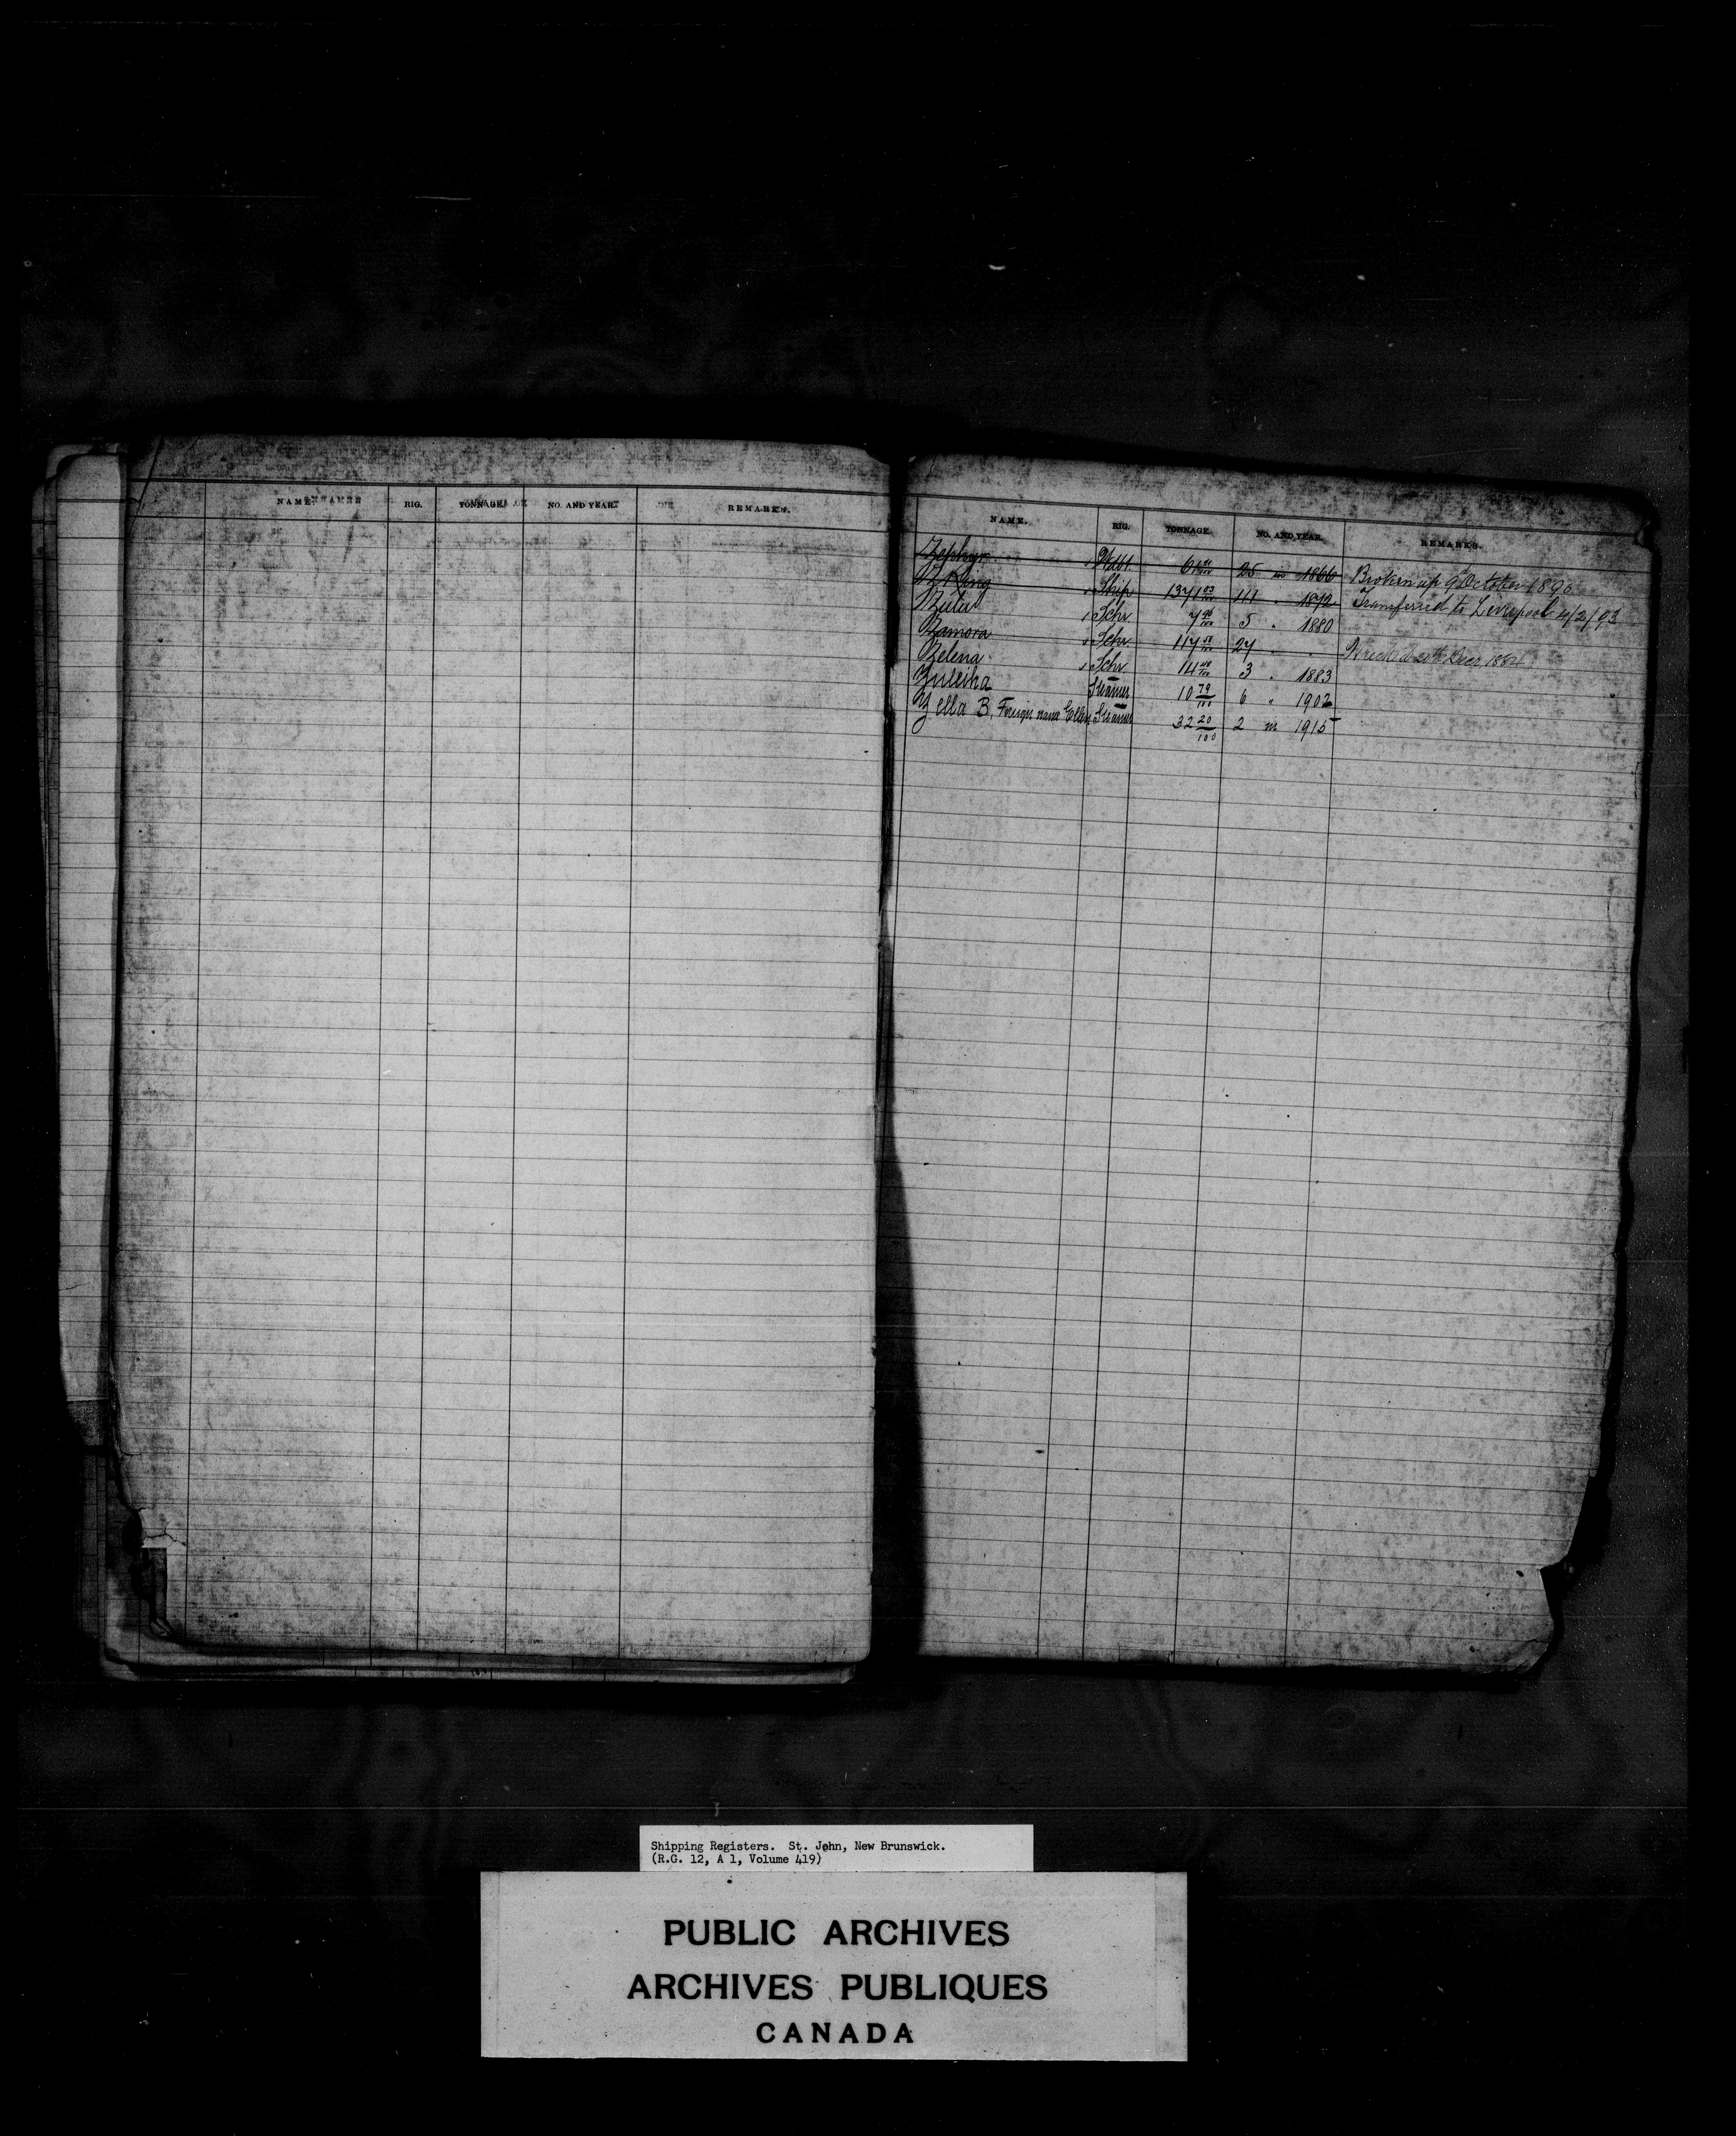 NAME. RIG. TONNAGE. NO. AND YEAR. REMARKS.
NAME. RIG. TONNAGE. NO. AND YEAR. REMARKS.
Zephyr Wdbt. 25 in 1866 Broken up 9 October 1890
Z Ring Ship 1371 1872 Transferred to Liverpool 4/2/93
Schr. 7 96/100 5 " 1880
Zamora Schr. 117 27 " " Wrecked Decr 1884
Zelena Schr 14 3 " 1883
Zuleika Steamer 10 79/100 6 " 1902
Zella B. Foreign name Ellen Steamer 32 20/100 2 in 1915
Shipping Registers. St. John, New Brunswick.
(R.G. 12, A 1, Volume 419)
PUBLIC ARCHIVES
ARCHIVES PUBLIQUES
CANADA